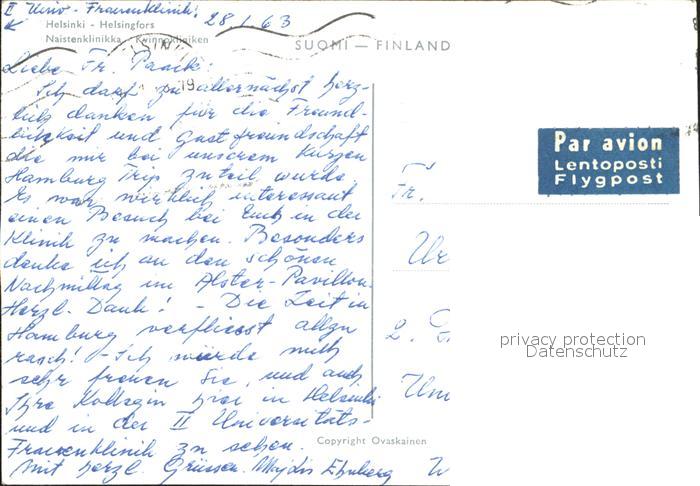 II Univ-Frauenklinik! 28/1 63
Helsinki - Helsingfors
Naistenklinikka - Kvinnokliniken
SUOMI — FINLAND
Liebe Fr.
Ich darf zu allernächst herz-
lich danken für die Freund-
lichkeit und Gastfreundschaft
die mir bei unserem kurzen
Hamburg Trip zuteil wurde.
Es war wirklich interessant
einen Besuch bei Euch in der
Klinik zu machen. Besonders
denke ich an den schönen
Nachmittag im Alster-Pavillon.
Herzl. Dank! - Die Zeit in
Hamburg verfliesst allzu
rasch! - Ich würde mich
sehr freuen Sie, und auch
Ihre Kollegin hier in Helsinki
und in der II Universitäts-
Frauenklinik zu sehen.
Mit herzl. Grüssen.
Par avion
Lentoposti
Flygpost
Fr.
Ur
2.
Um
privacy protection
Datenschutz
Copyright Ovaskainen
W